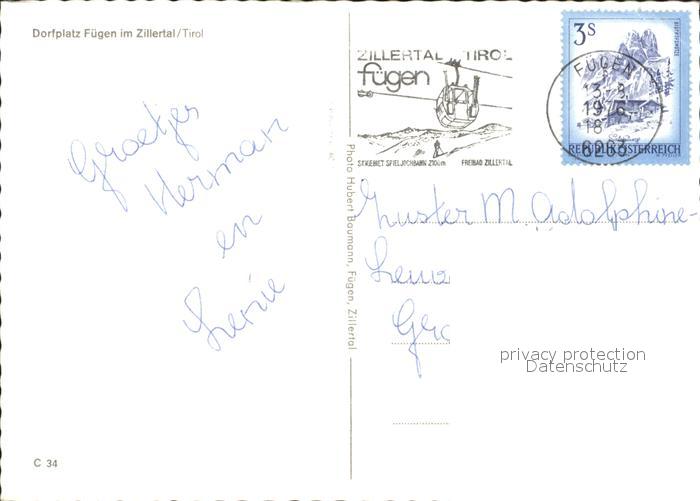 Dorfplatz Fügen im Zillertal/Tirol
Groetjes
Herman
en
C 34
Photo Hubert Baumann, Fügen, Zillertal
ZILLERTAL TIROL
fügen
SKIGEBIET SPIELJOCHBAHN 2100m FREIBAD ZILLERTAL
3S
FÜGEN
1976
6263
REPUBLIK ÖSTERREICH
Zuster M. Adolphine-
Gro
privacy protection
Datenschutz